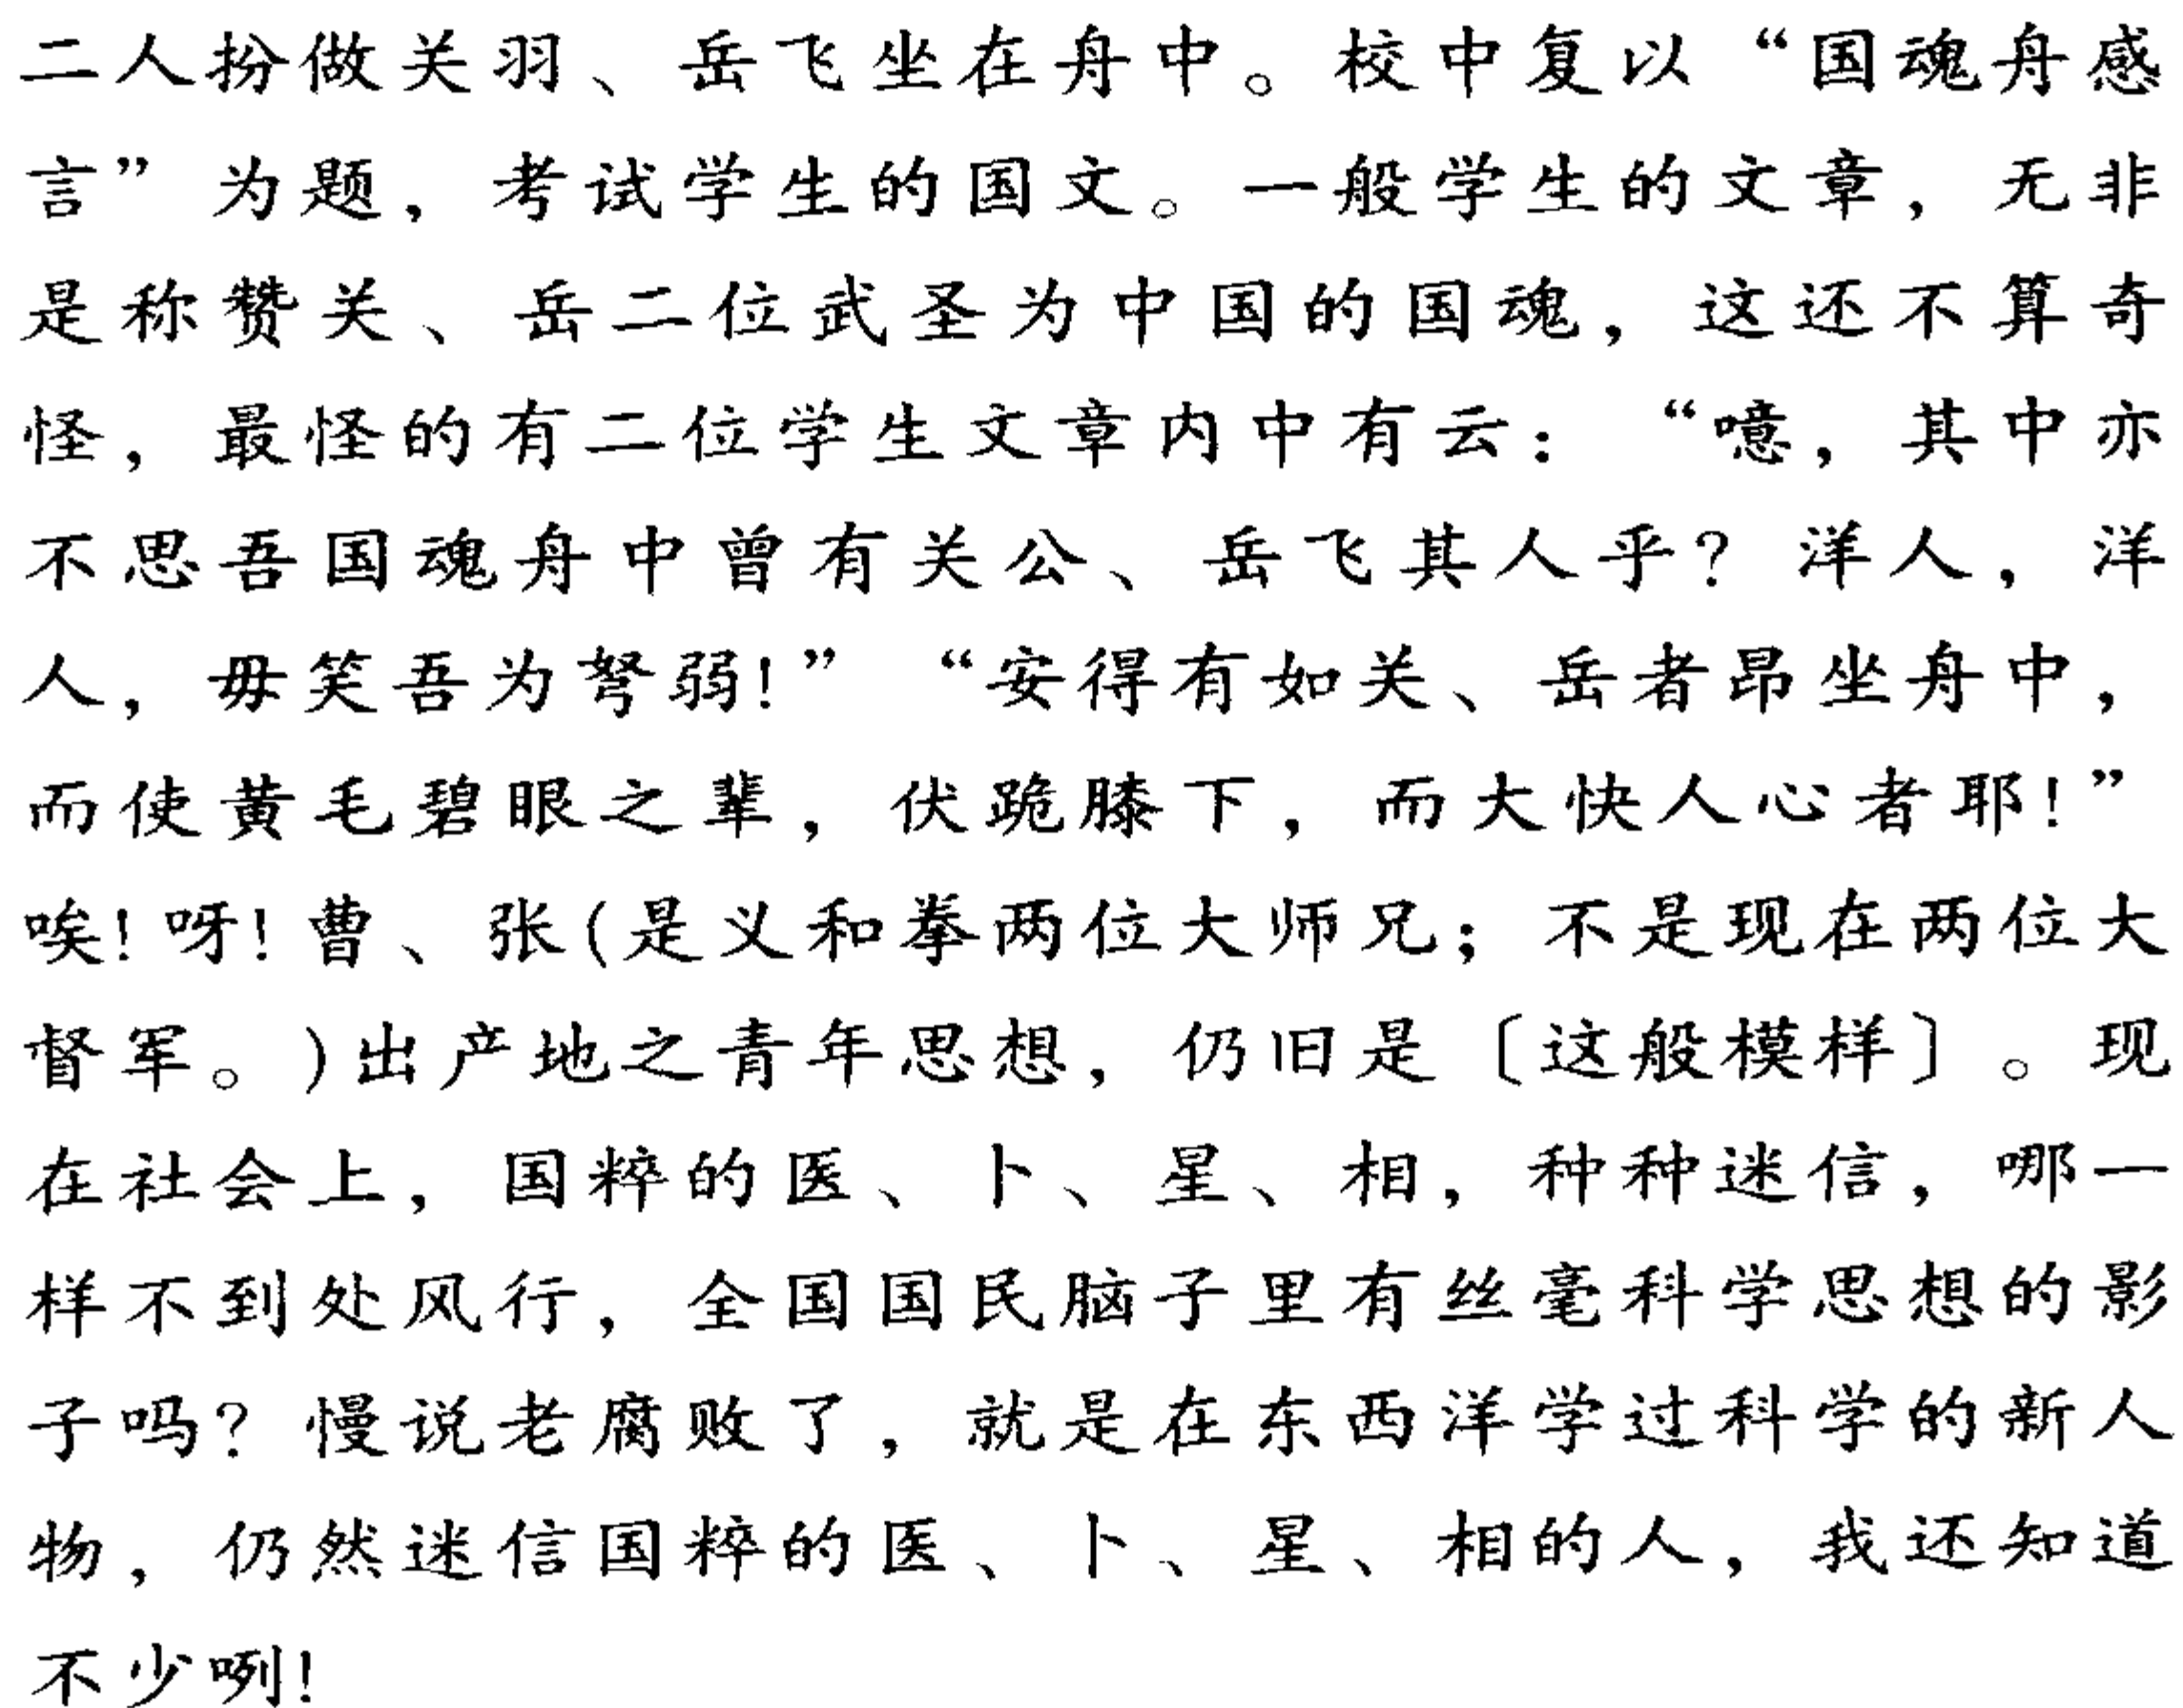 二人扮做关羽、岳飞坐在舟中。校中复以“国魂舟感
言”为题，考试学生的国文。一般学生的文章，无非
是称赞关、岳二位武圣为中国的国魂，这还不算奇
怪，最怪的有二位学生文章内中有云：“噫，其中亦
不思吾国魂舟中曾有关公、岳飞其人乎？洋人，洋
人，毋笑吾为弩弱！”“安得有如关、岳者昂坐舟中，
而使黄毛碧眼之辈，伏跪膝下，而大快人心者耶！”
唉！呀！曹、张(是义和拳两位大师兄；不是现在两位大
督军。)出产地之青年思想，仍旧是〔这般模样〕。现
在社会上，国粹的医、卜、星、相，种种迷信，哪一
样不到处风行，全国国民脑子里有丝毫科学思想的影
子吗？慢说老腐败了，就是在东西洋学过科学的新人
物，仍然迷信国粹的医、卜、星、相的人，我还知道
不少咧！